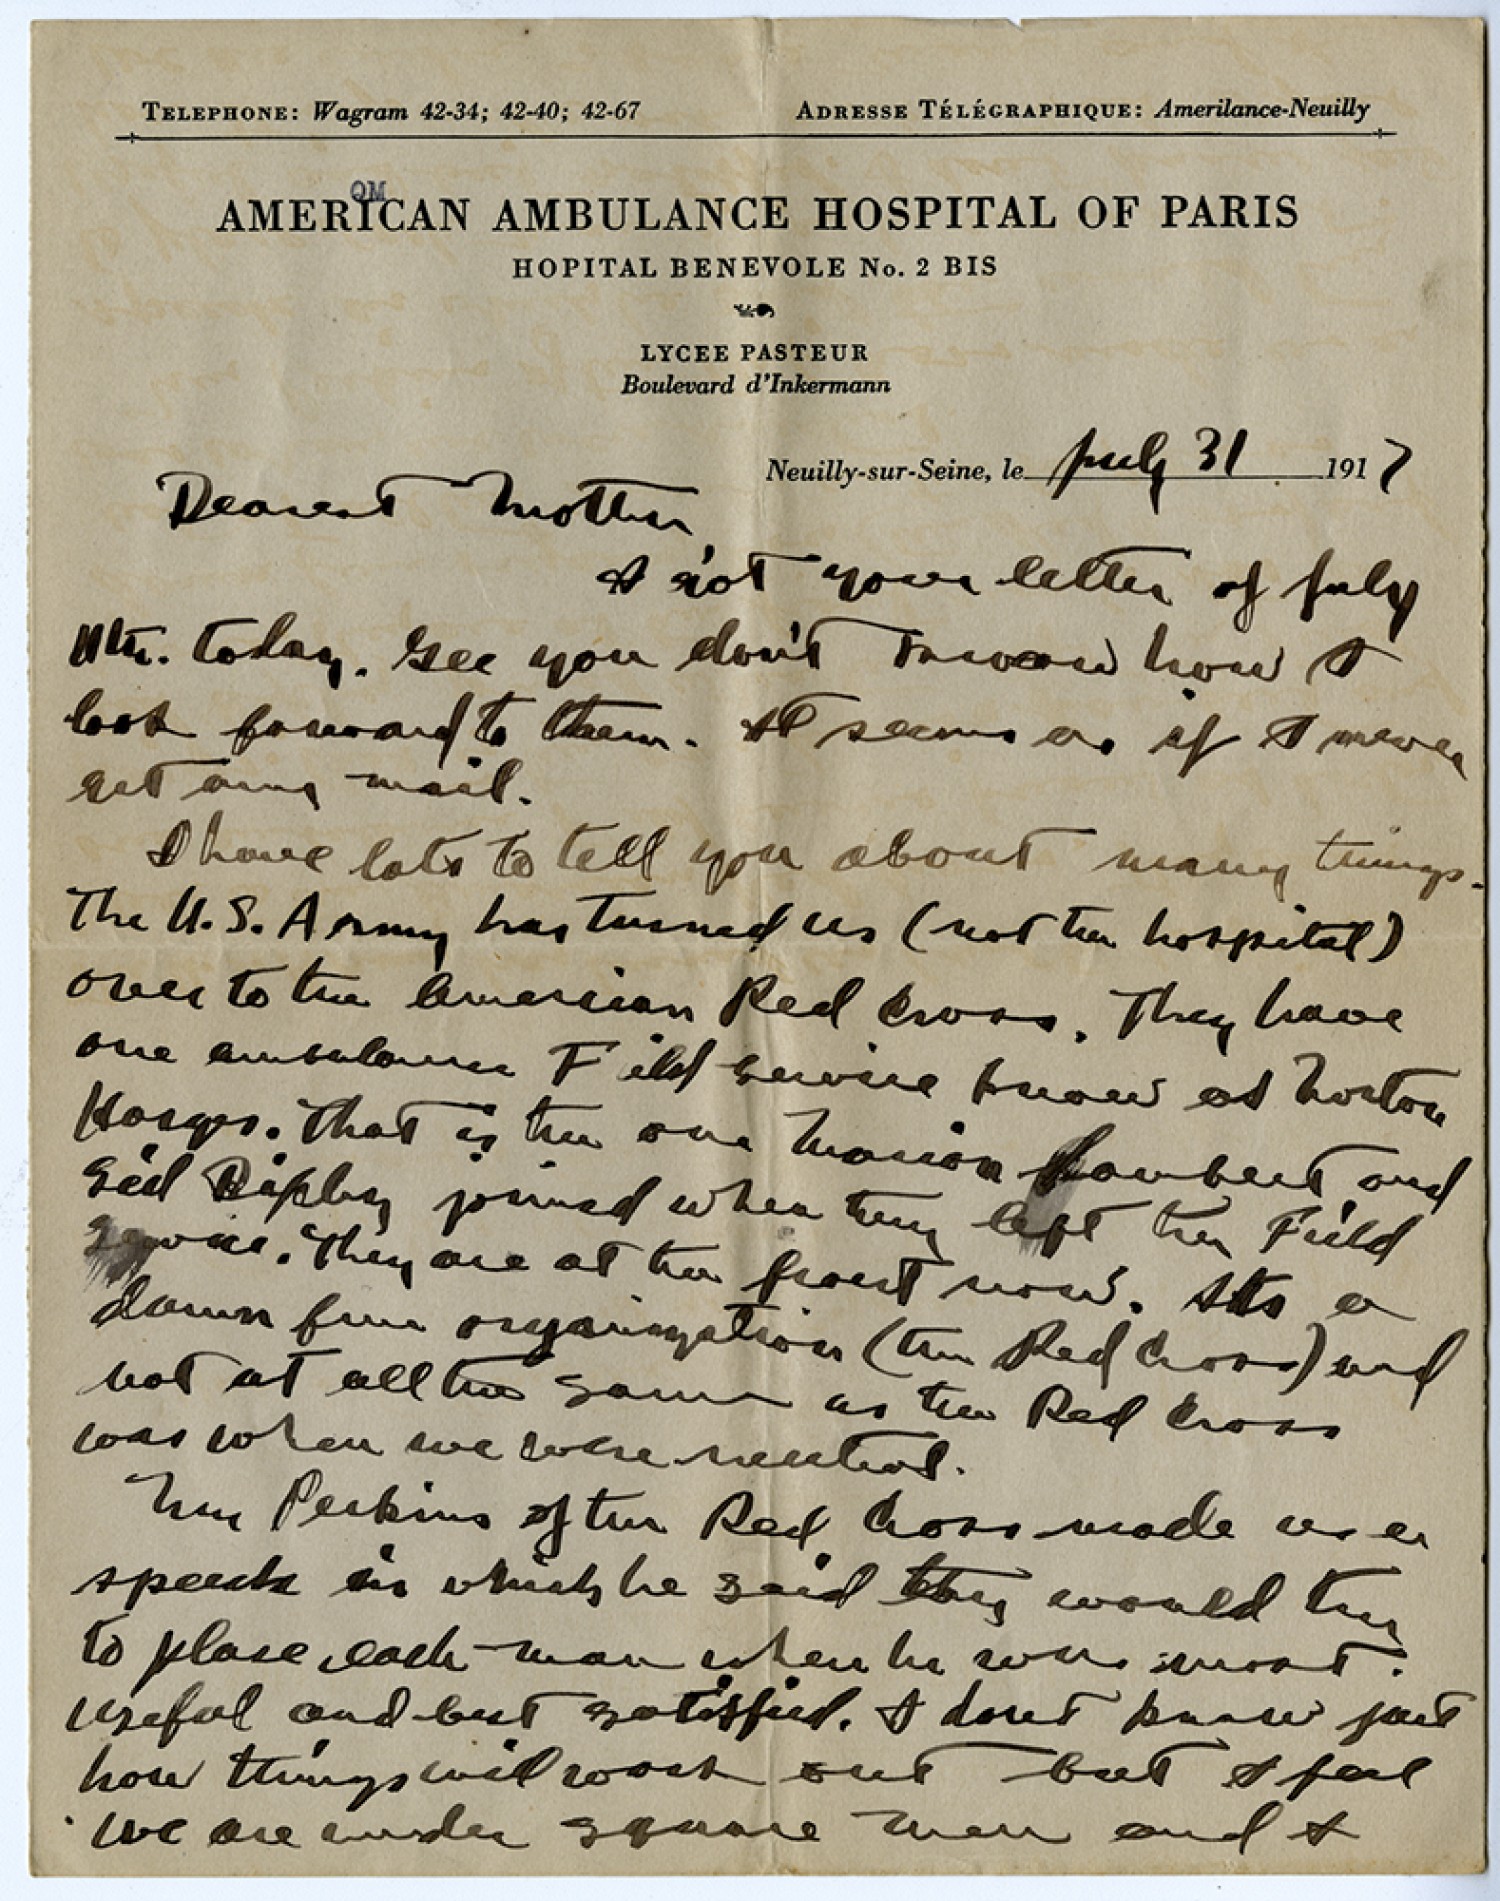 TELEPHONE: Wagram 42-34; 42-40; 42-67 ADRESSE TÉLÉGRAPHIQUE: Amerilance-Neuilly
QM
AMERICAN AMBULANCE HOSPITAL OF PARIS
HOPITAL BENEVOLE No. 2 BIS
LYCEE PASTEUR
Boulevard d'Inkermann
Neuilly-sur-Seine, le July 31 1917
Dearest Mother,
I got your letter of July
11th. today. Gee you don't know how I
look forward to them. It seems as if I never
get any mail.
I have lots to tell you about many things.
The U.S. Army has turned us (not the hospital)
over to the American Red Cross. They have
one ambulance Field Service know as Norton
Harjes. That is the one Marion Lambert and
Sid Ripley joined when they left the Field
Service. They are at the front now. Its a
damn fine organization (the Red Cross) and
not at all the same as the Red Cross
was when we were neutral.
Mr Perkins of the Red Cross made us a
speech in which he said they would try
to place each man when he was most
useful and best satisfied. I dont know just
how things will work out but I feel
we are under square men and I